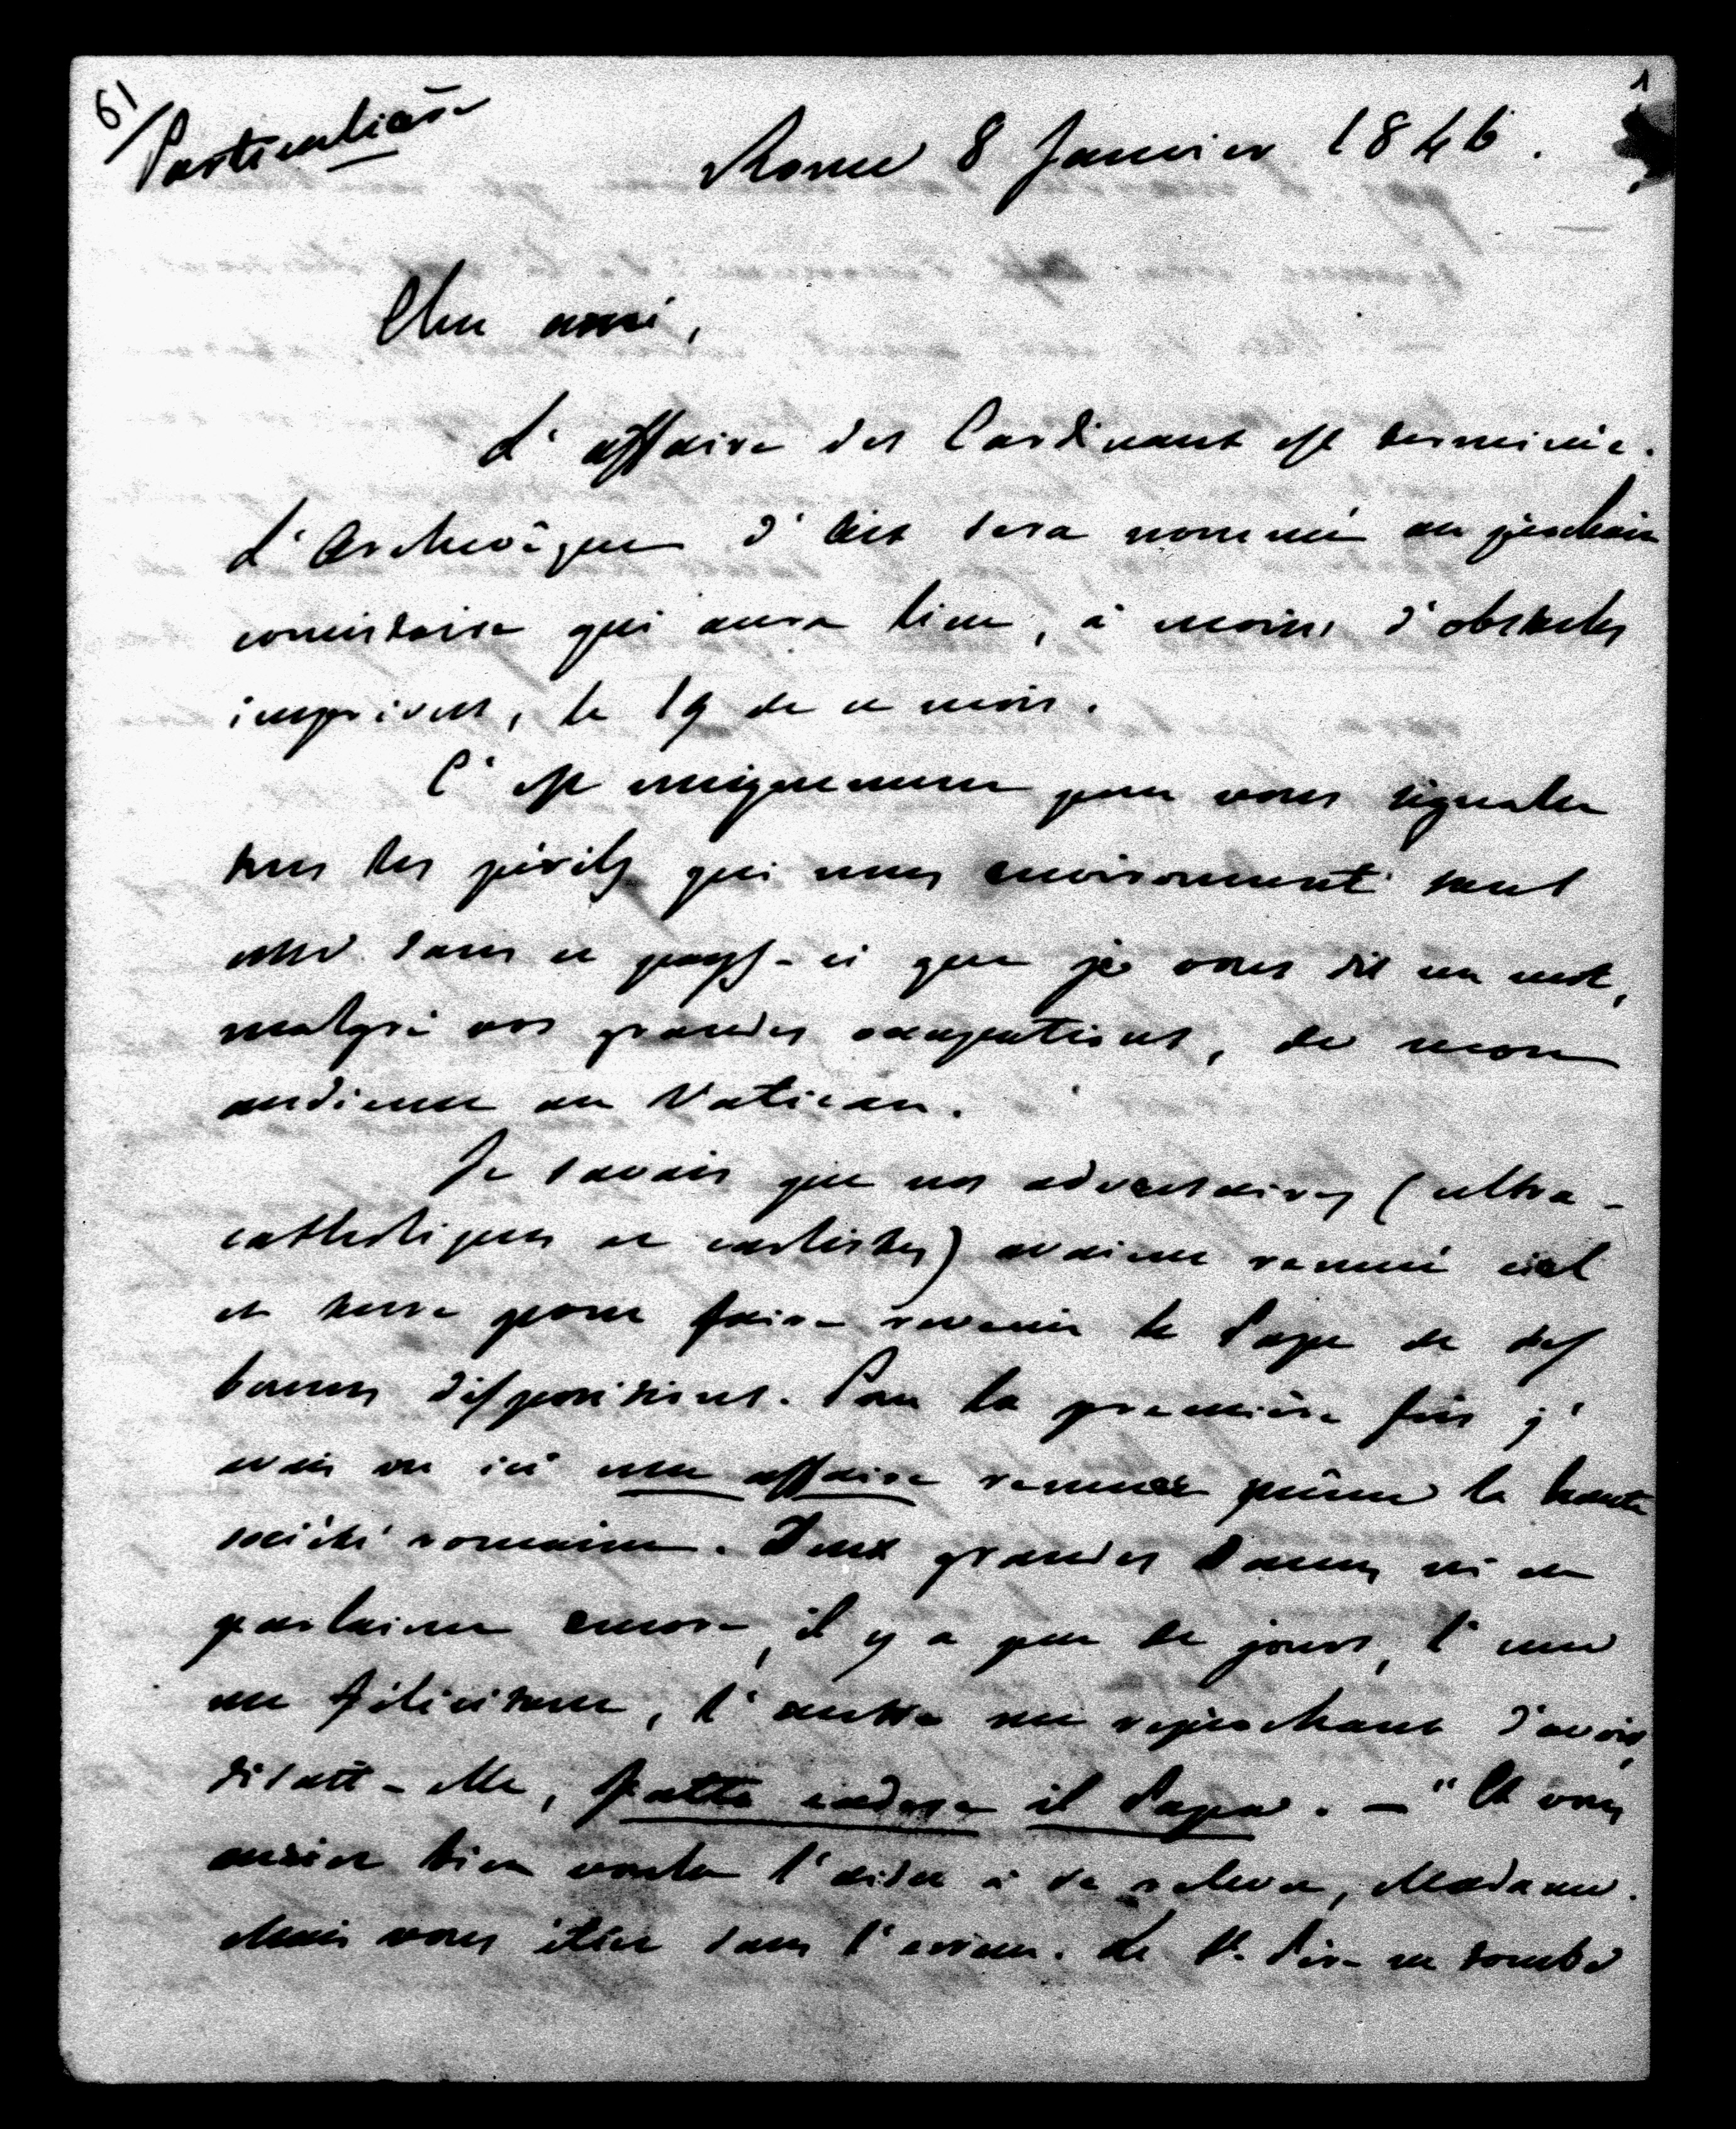 61
Particulière
1
Rome 8 Janvier 1846.
Cher ami,
L'affaire des Cardinaux est terminée.
L'Archevêque d'Aix sera nommé au prochain
consistoire qui aura lieu, à moins d'obstacles
imprévus, le 19 de ce mois.
C'est uniquement pour vous signaler
tous les périls qui nous environnent tant
dans ce pays-ci que je vous dis un mot,
malgré vos grandes occupations, de mon
audience au Vatican.
Je savais que nos adversaires (ultra-
catholiques et carlistes) avaient remué ciel
et terre pour faire revenir le Pape de ses
bonnes dispositions. Pour la première fois j'
avais vu ici une affaire remuer même la haute
société romaine. Deux grandes Dames m'en
parlaient encore, il y a peu de jours, l'une
me félicitant, l'autre me reprochant d'avoir,
disait-elle, fatto cadere il Papa. — "Et vous
auriez bien voulu l'aider à se relever, Madame.
Mais vous étiez dans l'erreur. Le St. Père ne tombe